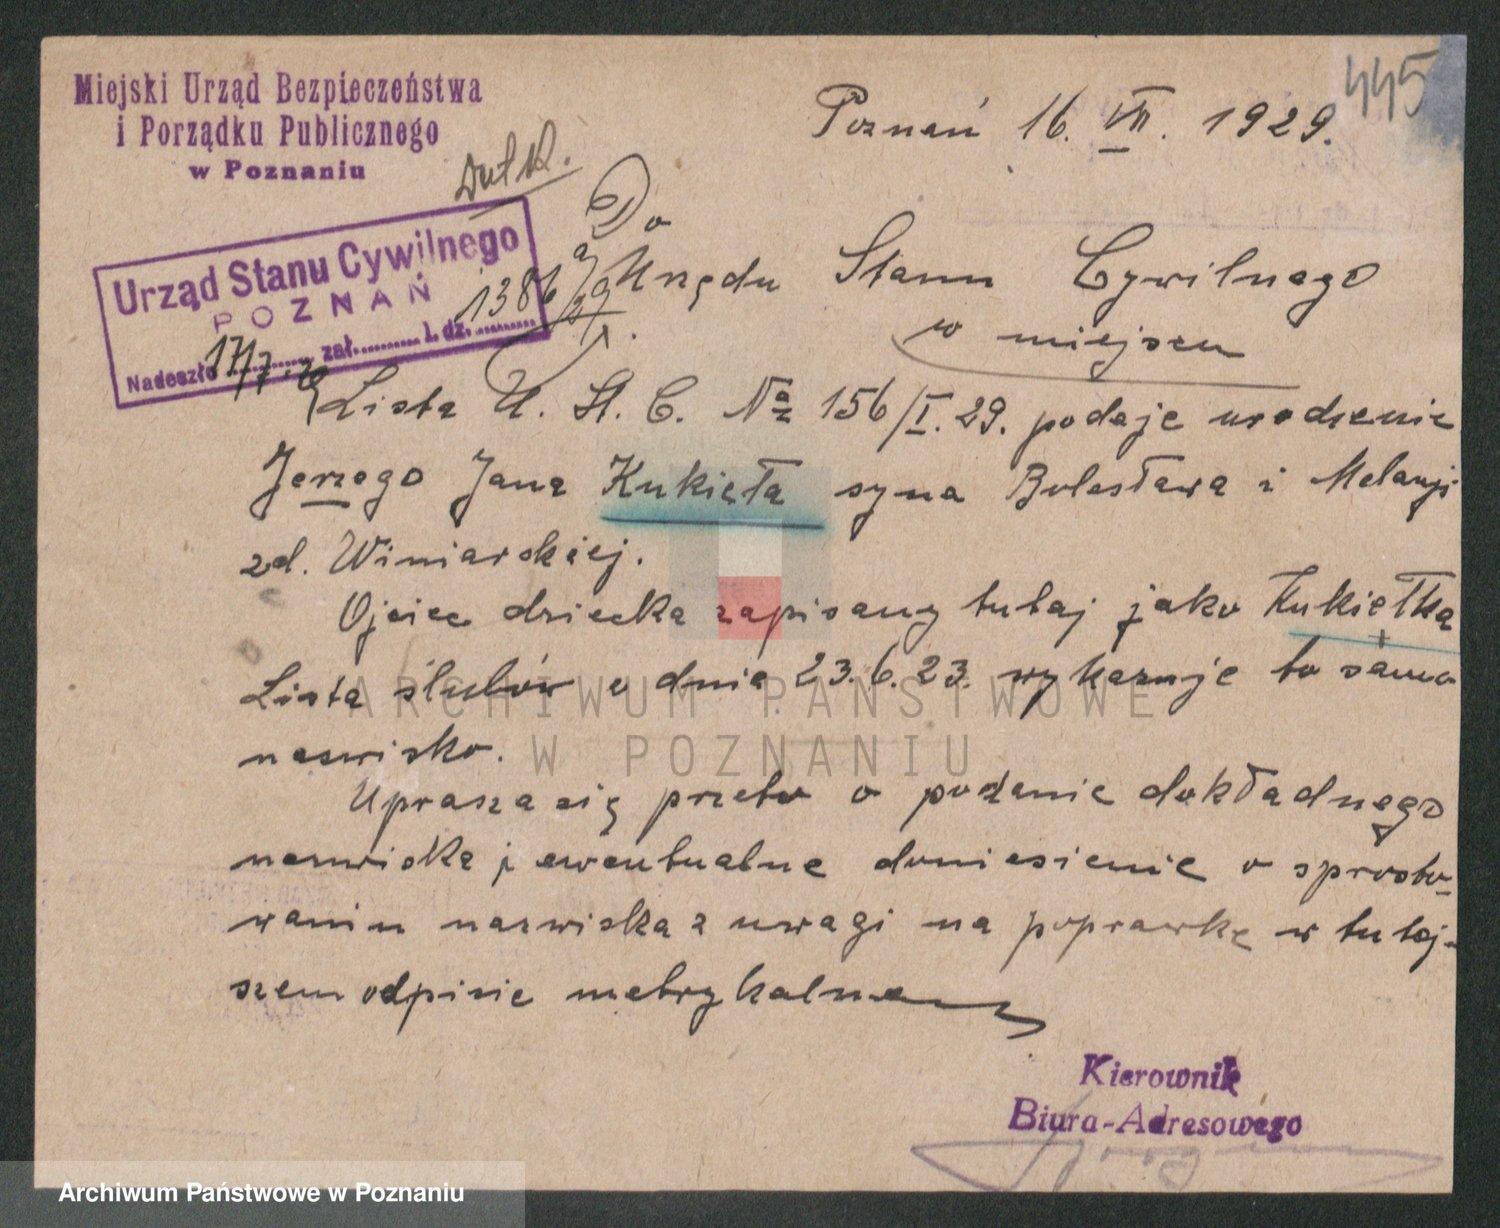 Miejski Urząd Bezpieczeństwa
i Porządku Publicznego
w Poznaniu
445
Poznań 16. VII. 1929.
Urząd Stanu Cywilnego
POZNAŃ
1386/29
Nadeszło 17/7.29 zał. l. dz.
Do
Urzędu Stanu Cywilnego
w miejscu
Lista U. St. C. No 156/I. 29. podaje urodzenie
Jerzego Jana Kukieła syna Bolesława i Melanji
zd. Winiarskiej.
Ojciec dziecka zapisany tutaj jako Kukiełka
Lista ślubów o dnia 23.6.23. wykazuje to samo
nazwisko.
Uprasza się przeto o podanie dokładnego
nazwiska i ewentualne doniesienie o sprosto-
waniu nazwiska z uwagi na poprawkę w tutej-
szem odpisie metrykalnem
Kierownik
Biura-Adresowego
ARCHIWUM PAŃSTWOWE
W POZNANIU
Archiwum Państwowe w Poznaniu